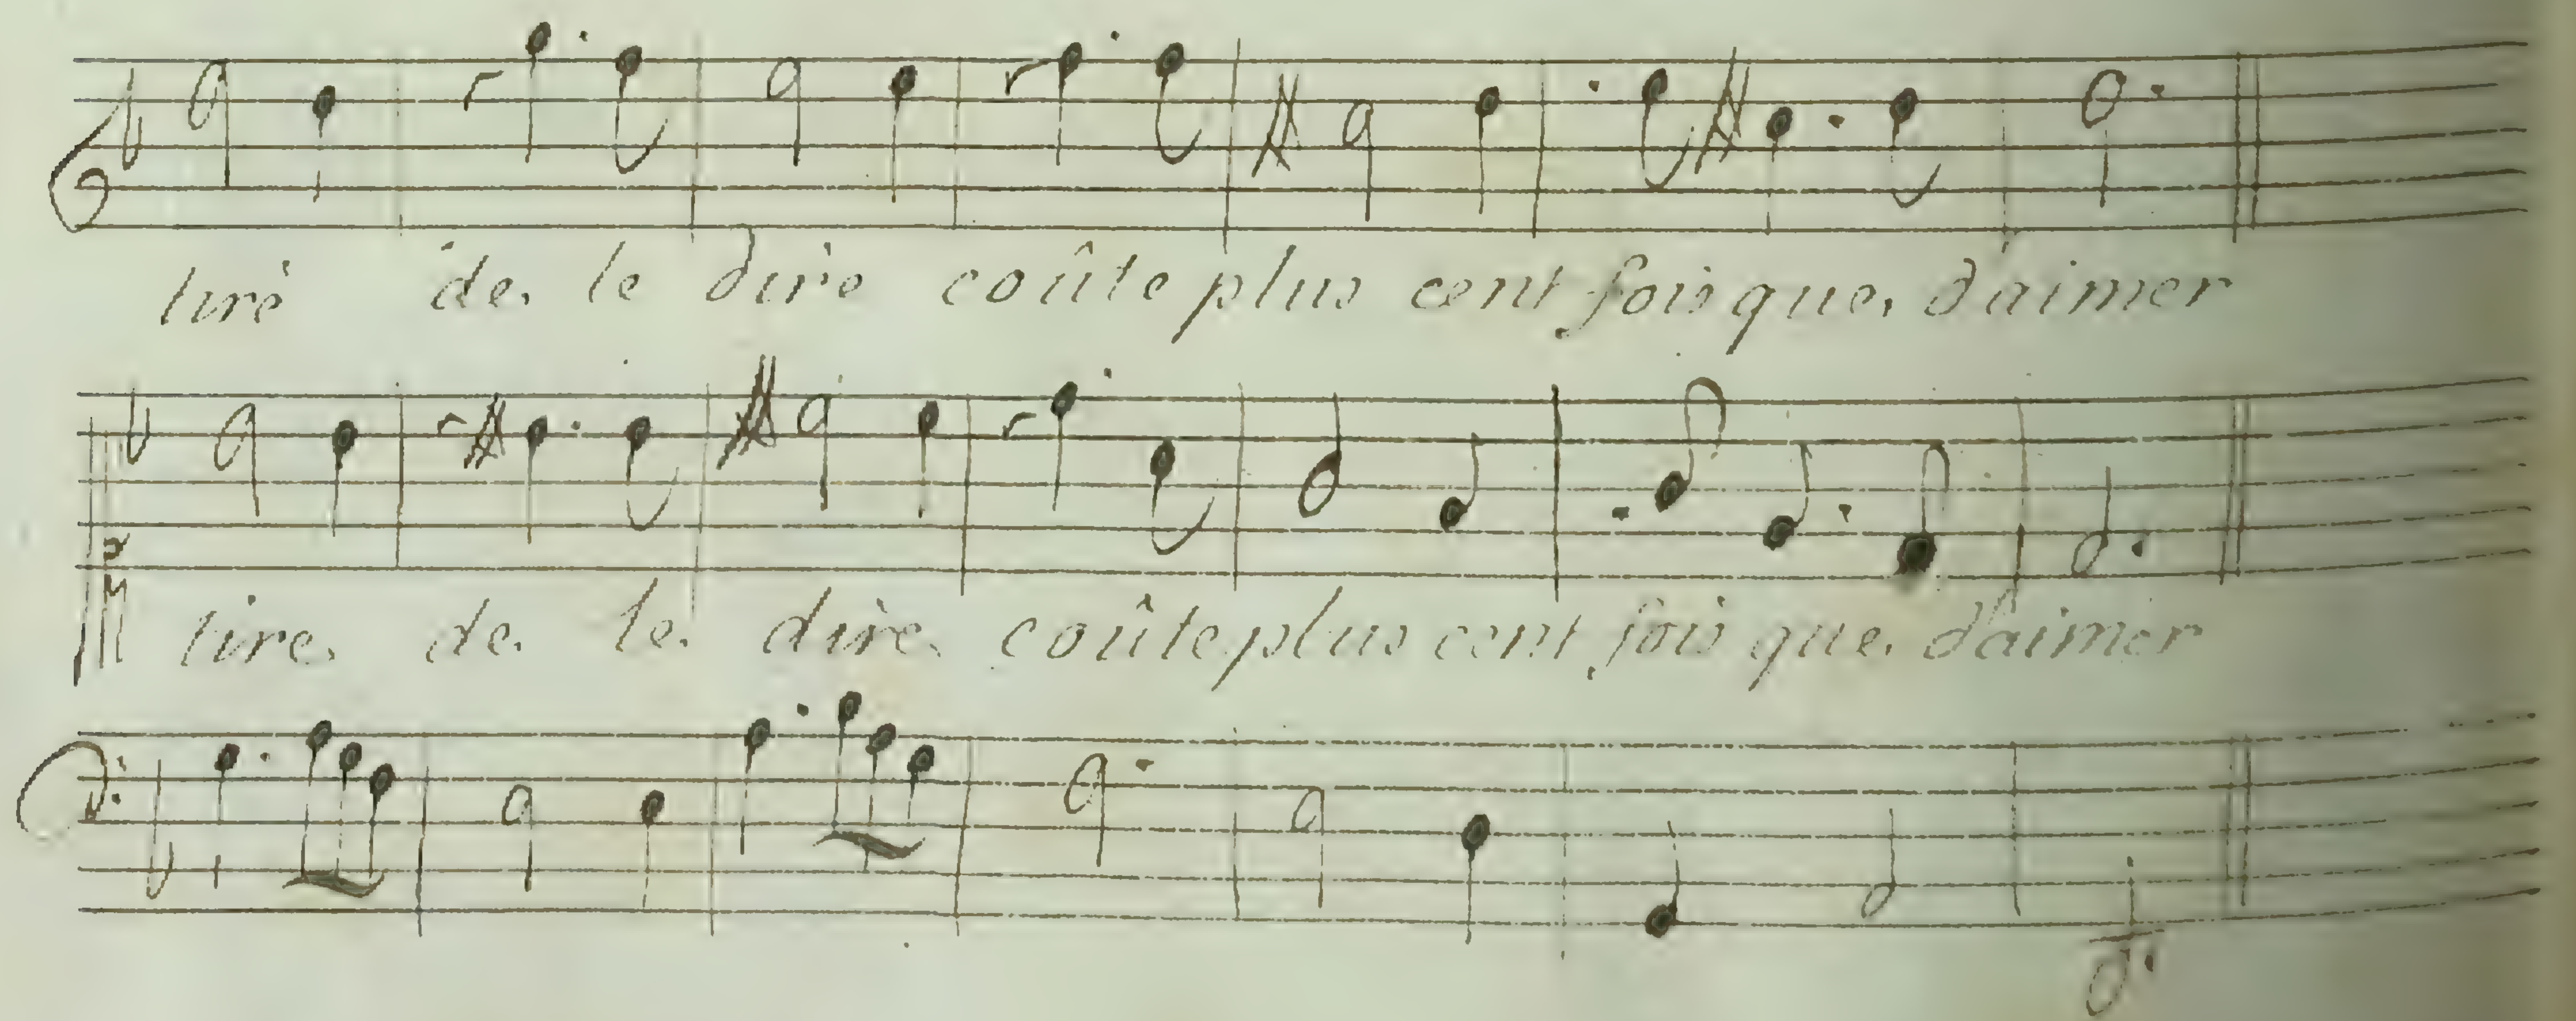 tire de le dire coûte plus cent fois que d'aimer
tire de le dire coûte plus cent fois que d'aimer